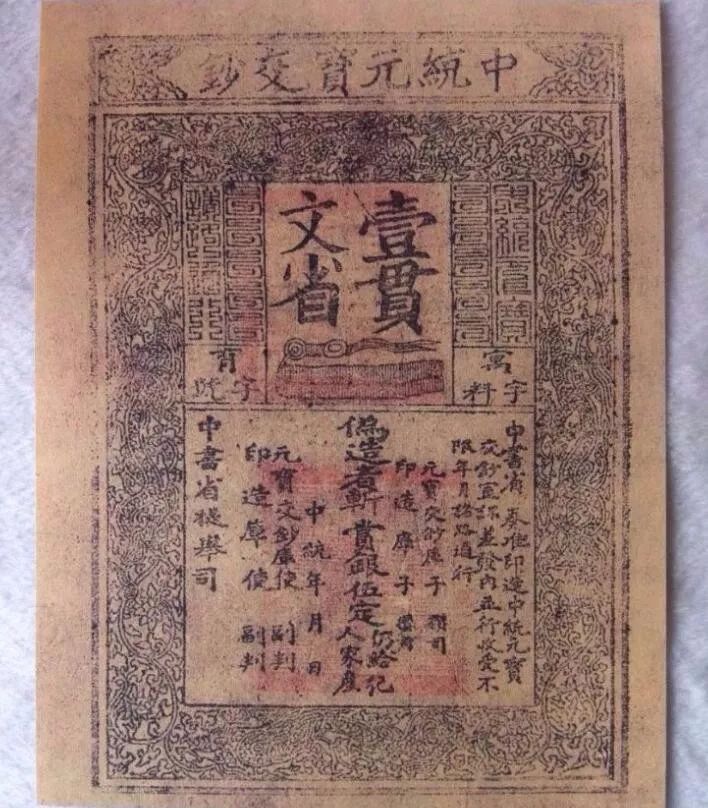 中統元寶交鈔
中統元寶
壹貫
文省
諸路通行
字料
育
字號
中書省 奏准印造中統元寶
交鈔宣課差發內並行收受不
限年月諸路通行
元寶交鈔庫子 攢司
印造庫子 攢司
偽造者斬 賞銀伍定 仍給犯
人家產
中統年月日
元寶交鈔庫使 副判
印造庫使 副判
中書省提舉司